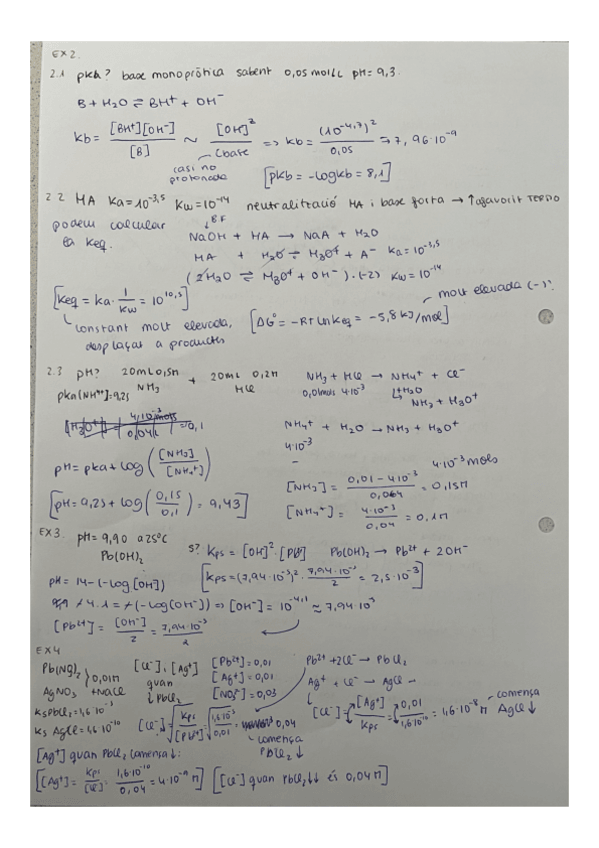 EX2.
2.1 pkb? base monopròtica sabent 0,05 mol/L pH=9,3.
B + H2O ⇌ BH+ + OH-
kb = [BH+][OH-]/[B] ~ [OH]²/Cbase => kb = (10^-4,7)²/0,05 → 7,96·10^-9
casi no protonada
[pkb = -log kb = 8,1]
2.2 HA Ka=10^-3,5 Kw=10^-14 neutralització HA i base forta →
podem calcular la Keq.
↓BF
NaOH + HA → NaA + H2O
HA + H2O ⇌ H3O+ + A- Ka=10^-3,5
(2H2O ⇌ H3O+ + OH-)·(-2) Kw=10^-14
[Keq = Ka · 1/Kw = 10^10,5]
constant molt elevada, desplaçat a productes
[ΔG° = -RT ln Keq = -5,8 kJ/mol]
molt elevada (-)
2.3 pH? 20mL 0,5M NH3 + 20mL 0,2M HCl
NH3 + HCl → NH4+ + Cl-
pka(NH4+)=9,25
0,01mols 4·10^-3
↳+H2O
NH3 + H3O+
[H3O+] = 4·10^-3 mols/0,04L = 0,1
NH4+ + H2O → NH3 + H3O+
4·10^-3
-
4·10^-3 mols
pH = pka + log ([NH3]/[NH4+])
[NH3] = 0,01 - 4·10^-3/0,04 = 0,15M
[pH = 9,25 + log (0,15/0,1) = 9,43]
[NH4+] = 4·10^-3/0,04 = 0,1M
EX3. pH=9,90 a 25°C
Pb(OH)2
s? Kps = [OH]²·[Pb] Pb(OH)2 → Pb2+ + 2OH-
pH = 14-(-log[OH])
[Kps = (7,94·10^-5)² · 7,94·10^-5/2 = 2,5·10^-3]
9,9 4.1 = (-log[OH-]) => [OH-] = 10^-4,1 ≈ 7,94·10^5
[Pb2+] = [OH-]/2 = 7,94·10^-5/2
EX4
Pb(NO3)2
AgNO3 } 0,01M
+NaCl
[Cl-], [Ag+]
quan
↓PbCl2
[Pb2+] = 0,01
[Ag+] = 0,01
[NO3-] = 0,03
Pb2+ + 2Cl- → PbCl2
Ag+ + Cl- → AgCl
KsPbCl2 = 1,6·10^-5
Ks AgCl = 1,6·10^-10
[Cl-] = √Kps/[Pb2+] = √1,6·10^-5/0,01 = 0,04
comença PbCl2 ↓
[Cl-] = [Ag+]/Kps = 0,01/1,6·10^-10 = 1,6·10^-8 M
comença AgCl ↓
[Ag+] quan PbCl2 comença ↓:
[[Ag+] = Kps/[Cl] = 1,6·10^-10/0,04 = 4·10^-9 M]
[[Cl-] quan PbCl2 ↓↓ és 0,04M]